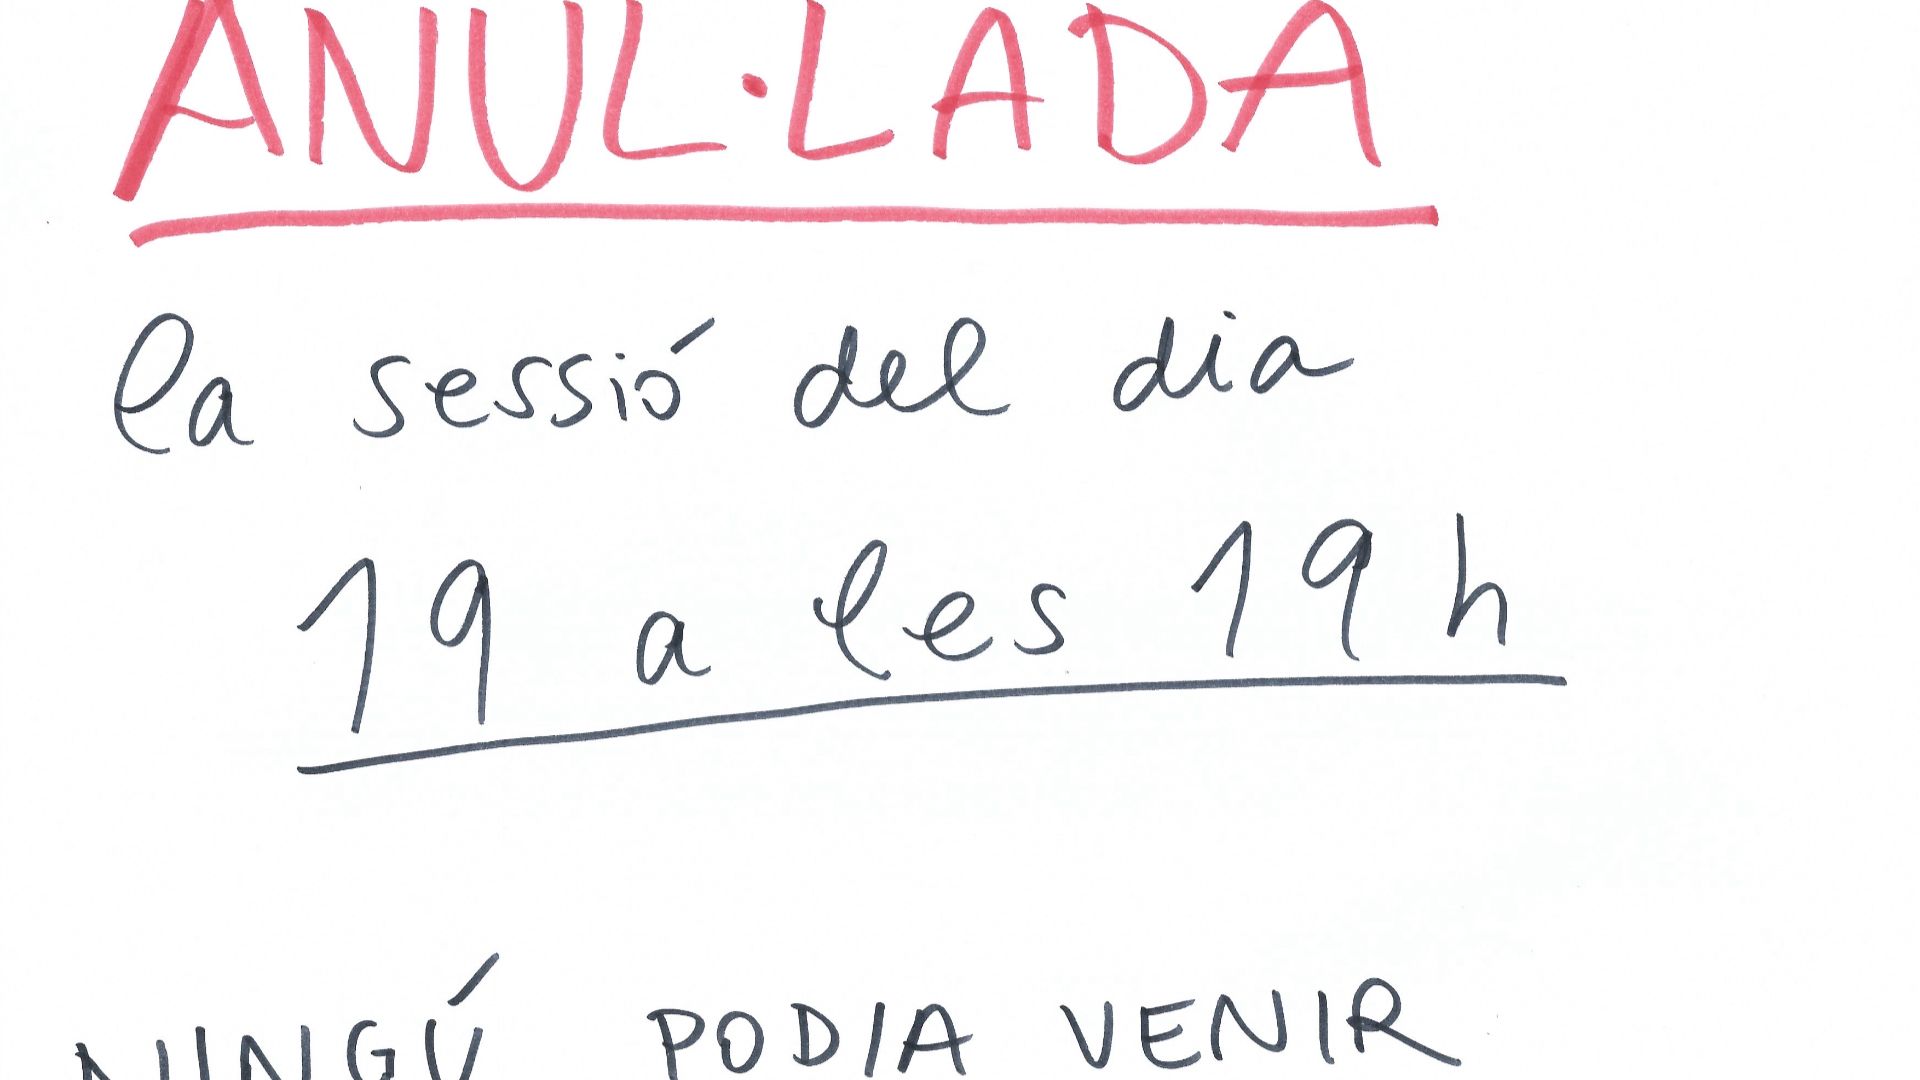 ANUL·LADA
la sessió del dia
19 a les 19h
NINGÚ PODIA VENIR